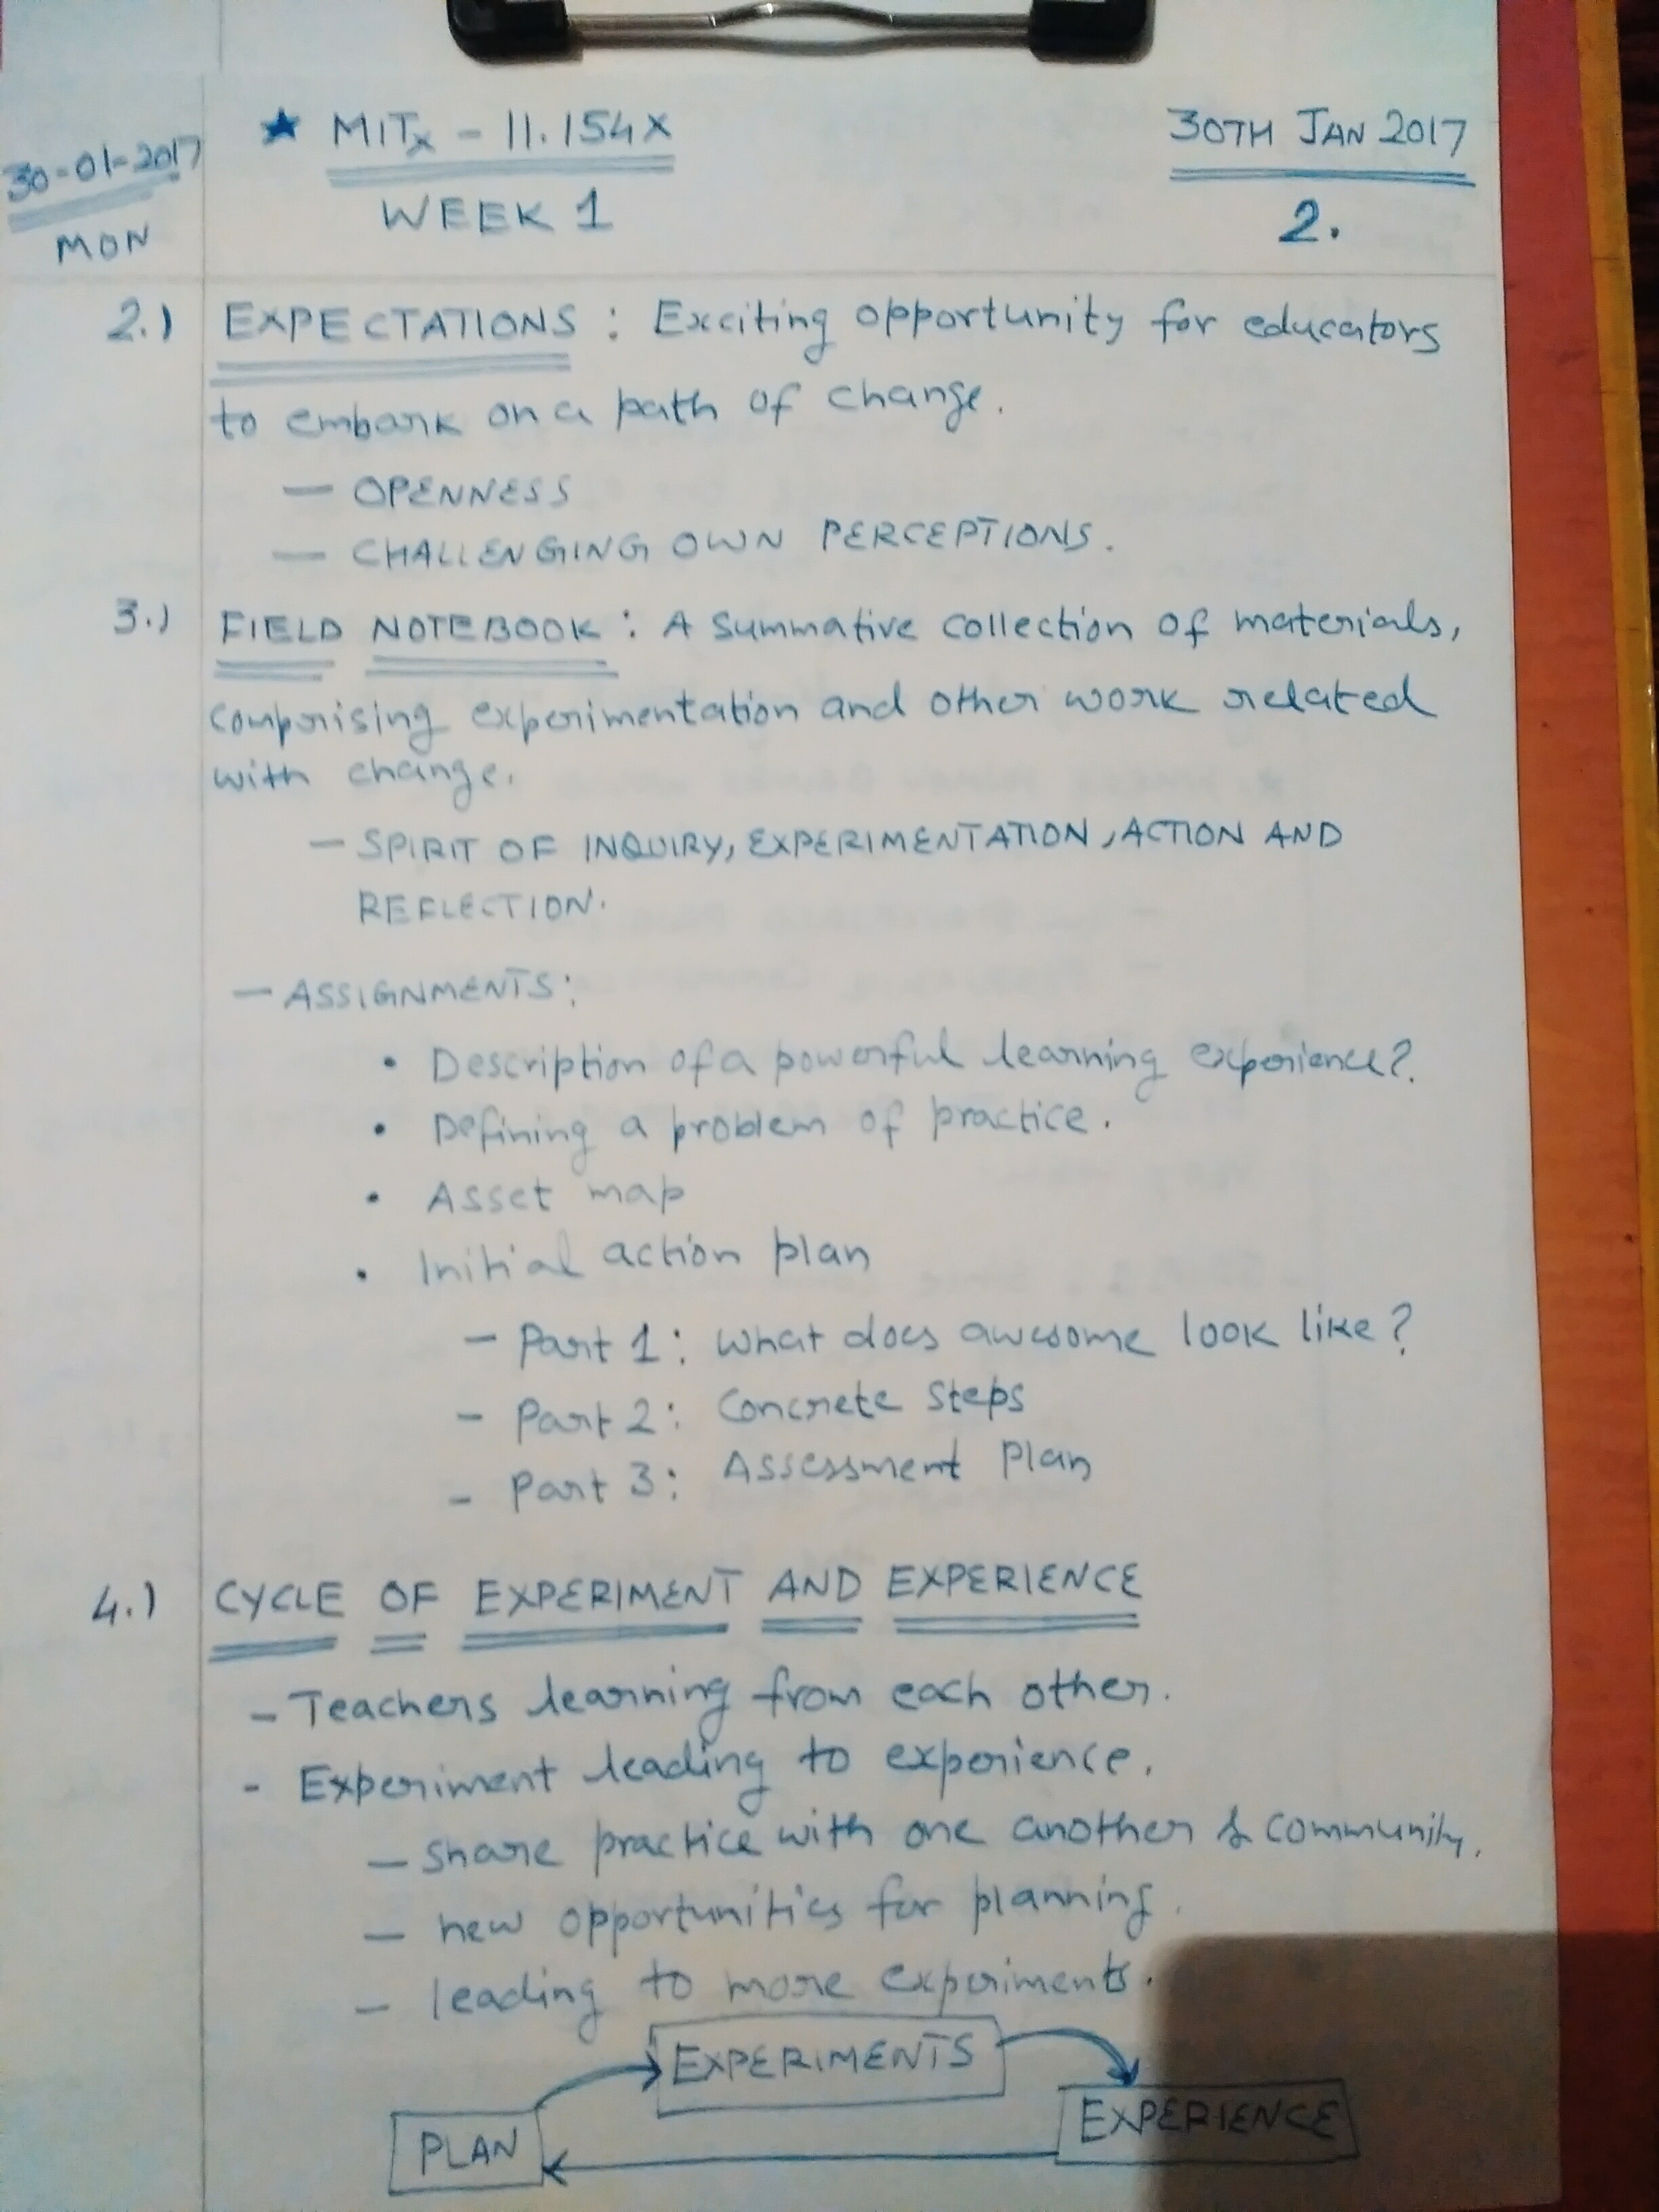 ★ MITx - 11.154X
30TH JAN 2017
30-01-2017
MON
WEEK 1
2.
2.) EXPECTATIONS : Exciting opportunity for educators
to embark on a path of change.
— OPENNESS
— CHALLENGING OWN PERCEPTIONS.
3.) FIELD NOTEBOOK : A summative collection of materials,
comprising experimentation and other work related
with change.
— SPIRIT OF INQUIRY, EXPERIMENTATION, ACTION AND
REFLECTION.
— ASSIGNMENTS:
• Description of a powerful learning experience?
• Defining a problem of practice.
• Asset map
• Initial action plan
— Part 1: What does awesome look like?
- Part 2: Concrete Steps
- Part 3: Assessment Plan
4.) CYCLE OF EXPERIMENT AND EXPERIENCE
- Teachers learning from each other.
- Experiment leading to experience.
— share practice with one another & community.
— new opportunities for planning.
— leading to more experiments.
EXPERIMENTS
EXPERIENCE
PLAN